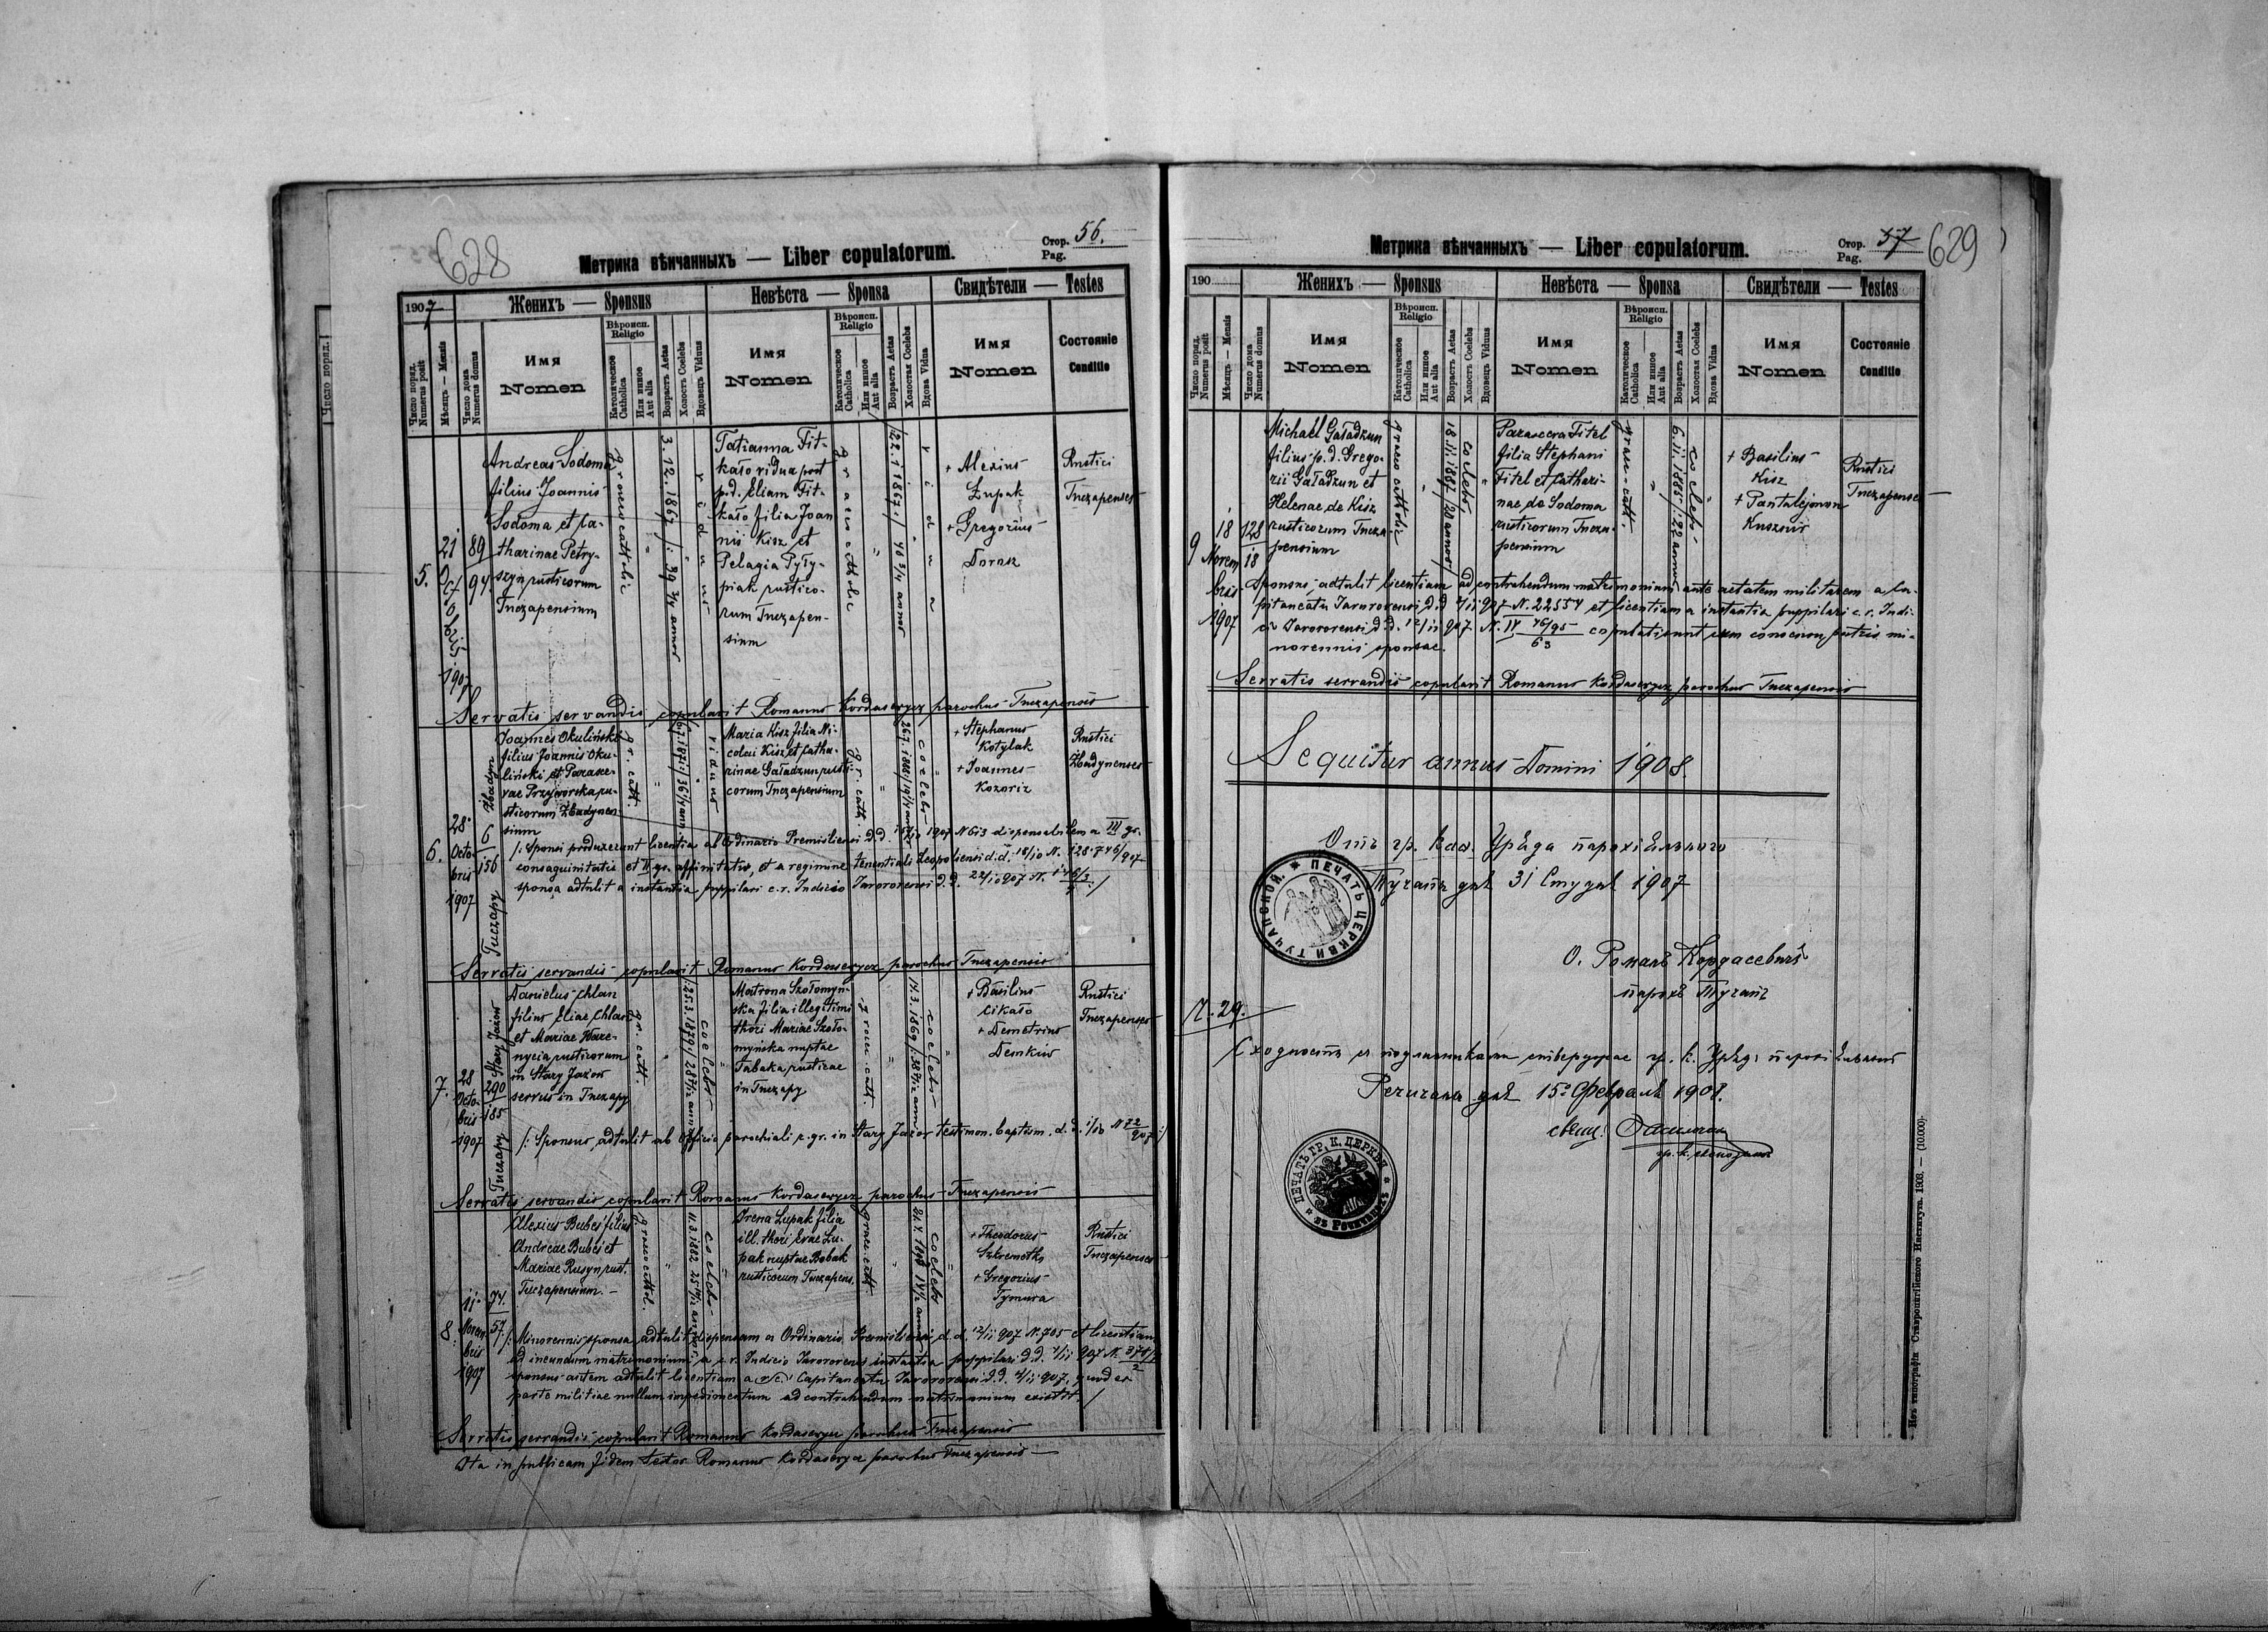 628
Метрика вѣнчанныхъ — Liber copulatorum.
Стор. 56.
Pag.
1907
Женихъ — Sponsus
Невѣста — Sponsa
Свидѣтели — Testes
Число поряд.
Numerus posit
Мѣсяць — Mensis
Число дома
Numerus domus
Имя
Nomen
Вѣроисп.
Religio
Католическое
Catholica
Или инное
Aut alia
Возрастъ Aetas
Холостъ Coelebs
Вдовецъ Viduus
Имя
Nomen
Вѣроисп.
Religio
Католическое
Catholica
Или инное
Aut alia
Возрастъ Aetas
Холостая Coelebs
Вдова Vidua
Имя
Nomen
Состояніе
Conditio
5.
21
Octobris
1907
89
94
Andreas Sodoma
filius Joannis
Sodoma et Ca-
tharinae Petry-
szyn rusticorum
Tuczapensium
graeco cathol
3.12.1867 /: 39 3/4 annor
viduus
Tatianna Fit-
kało vidua post
p.d. Eliam Fit-
kało filia Joan
nis Kisz et
Pelagia Pyły-
piak rustico-
rum Tuczapen-
sium
vidua
+ Alexius
Łupak
+ Gregorius
Dorosz
Rustici
Tuczapenses
Servatis servandis copulavit Romanus Kordasewycz parochus Tuczapensis
6.
28
Octo-
bris
1907
6
156
Tuczapy
Joannes Okuliński
filius Joannis Oku-
liński et Parasce-
vae Przyworska ru-
sticorum Zbadynen-
sium
gr. cath.
viduus
Maria Kisz filia Ni-
colai Kisz et Catha-
rinae Gaładzun rusti-
corum Tuczapensium
gr. cath.
coelebs
+ Stephanus
Kotylak
+ Joannes
Kozoriz
Rustici
Zbadynenses
/: Sponsi produxerunt licentia ab Ordinario Premisliensi d.d. 1907 N 613 dispensabilem a III gr.
consaguinitatis et II gr. affinitatis, et a regimine tenentiali Leopoliensi d.d. 18/10 N. 128.746/907
sponsa adtulit a instantia puppilari c.r. Indicio Javoroviensi d.d. 22/10 907 N.
Servatis servandis copulavit Romanus Kordasewycz parochus Tuczapensis
7.
28
Octo-
bris
1907
Stary Jazow
290
185
Tuczapy
Danielus Chlan
filius Eliae Chlan
et Mariae Hare-
nycia rusticorum
in Stary Jazow
servus in Tuczapy
gr. cath.
coelebs
Matrona Szołomyn-
ska filia illegitimi
thori Mariae Szoło-
myńska nuptae
Tabaka rusticae
in Tuczapy
graeci cath.
coelebs
+ Basilius
Cikało
+ Demetrius
Demkiw
Rustici
Tuczapenses
/: Sponsus adtulit ab Officio parochiali r.gr. in Stary Jazow testimon. baptism. d.d. 1/10 N 72/907 :/
Servatis servandis copulavit Romanus Kordasewycz parochus Tuczapensis
8.
11
Novem-
bris
1907
74.
57
Alexius Bubeś filius
Andreae Bubeś et
Mariae Rusyn rust.
Tuczapensium
graeco cathol.
coelebs
Irena Łupak filia
ill. thori Evae Łu-
pak nuptae Bobak
rusticorum Tuczapens.
graec. cath.
coelebs
+ Theodorus
+ Gregorius
Tymura
Rustici
Tuczapenses
/: Minorennis sponsa adtulit dispensam a Ordinario Premisliensi d.d. 12/11 907 N. 705 et licentiam
ad ineundum matrimonium a c.r. Indicio Javoroviensi instantia puppilari d.d. 4/11 907 N.
sponsus autem adtulit licentiam a c.r. Capitaneatu Javoroviensi d.d. 4/11 907, quod ex
parte militiae nullum impedimentum ad contrahendum matrimonium existit. /
Servatis servandis copulavit Romanus Kordasewycz parochus Tuczapensis
Ita in publicam fidem testor Romanus Kordasewycz parochus Tuczapensis
629
Метрика вѣнчанныхъ — Liber copulatorum.
Стор. 57
Pag.
190
Женихъ — Sponsus
Невѣста — Sponsa
Свидѣтели — Testes
Число поряд.
Numerus posit
Мѣсяць — Mensis
Число дома
Numerus domus
Имя
Nomen
Вѣроисп.
Religio
Католическое
Catholica
Или инное
Aut alia
Возрастъ Aetas
Холостъ Coelebs
Вдовецъ Viduus
Имя
Nomen
Вѣроисп.
Religio
Католическое
Catholica
Или инное
Aut alia
Возрастъ Aetas
Холостая Coelebs
Вдова Vidua
Имя
Nomen
Состояніе
Conditio
9
18
Novem
bris
1907
128
18
Michael Gaładzun
filius p.d. Grego-
rii Gaładzun et
Helenae de Kisz
rusticorum Tucza-
pensium
graeco cathol
18.11.1887 /20 annor/
coelebs
Parascera Fitel
filia Stephani
Fitel et Cathari-
nae de Sodoma
rusticorum Tucza-
pensium
graec-cath.
6.11.1885 /: 22 annor
coelebs
+ Basilius
Kisz
+ Pantalejmon
Kusznir
Rustici
Tuczapenses
Sponsus adtulit licentiam ad contrahendum matrimonium ante aetatem militarem a Ca-
pitaneatu Javoroviensi d.d 4/11 907 N. 22554 et licentiam a instantia puppilari c.r. Indi-
cii Javoroviensi d.d. 12/11 907 N. IV 46/95 63 copulati sunt cum consensu patris mi-
norennis sponsae.
Servatis servandis copulavit Romanus Kordasewycz parochus Tuczapensis
Sequitur annus Domini 1908.
Отъ гр. Каѳ. Уряда парохіяльного
Тучапы дня 31 Студня 1907
ПЕЧАТЬ ЦЕРКВИ ТУЧАПСКОЙ.
О. Романъ Кордасевичъ
парохъ Тучапъ
Л. 29.
Сходность съ подлинниками стверджае гр. к. Урядъ парохіяльный
Речичаны дня 15 Февраля 1908.
ПЕЧАТЬ ГР. К. ЦЕРКВИ
Изъ типографіи Ставропигійского Института. 1903. — (10.000)